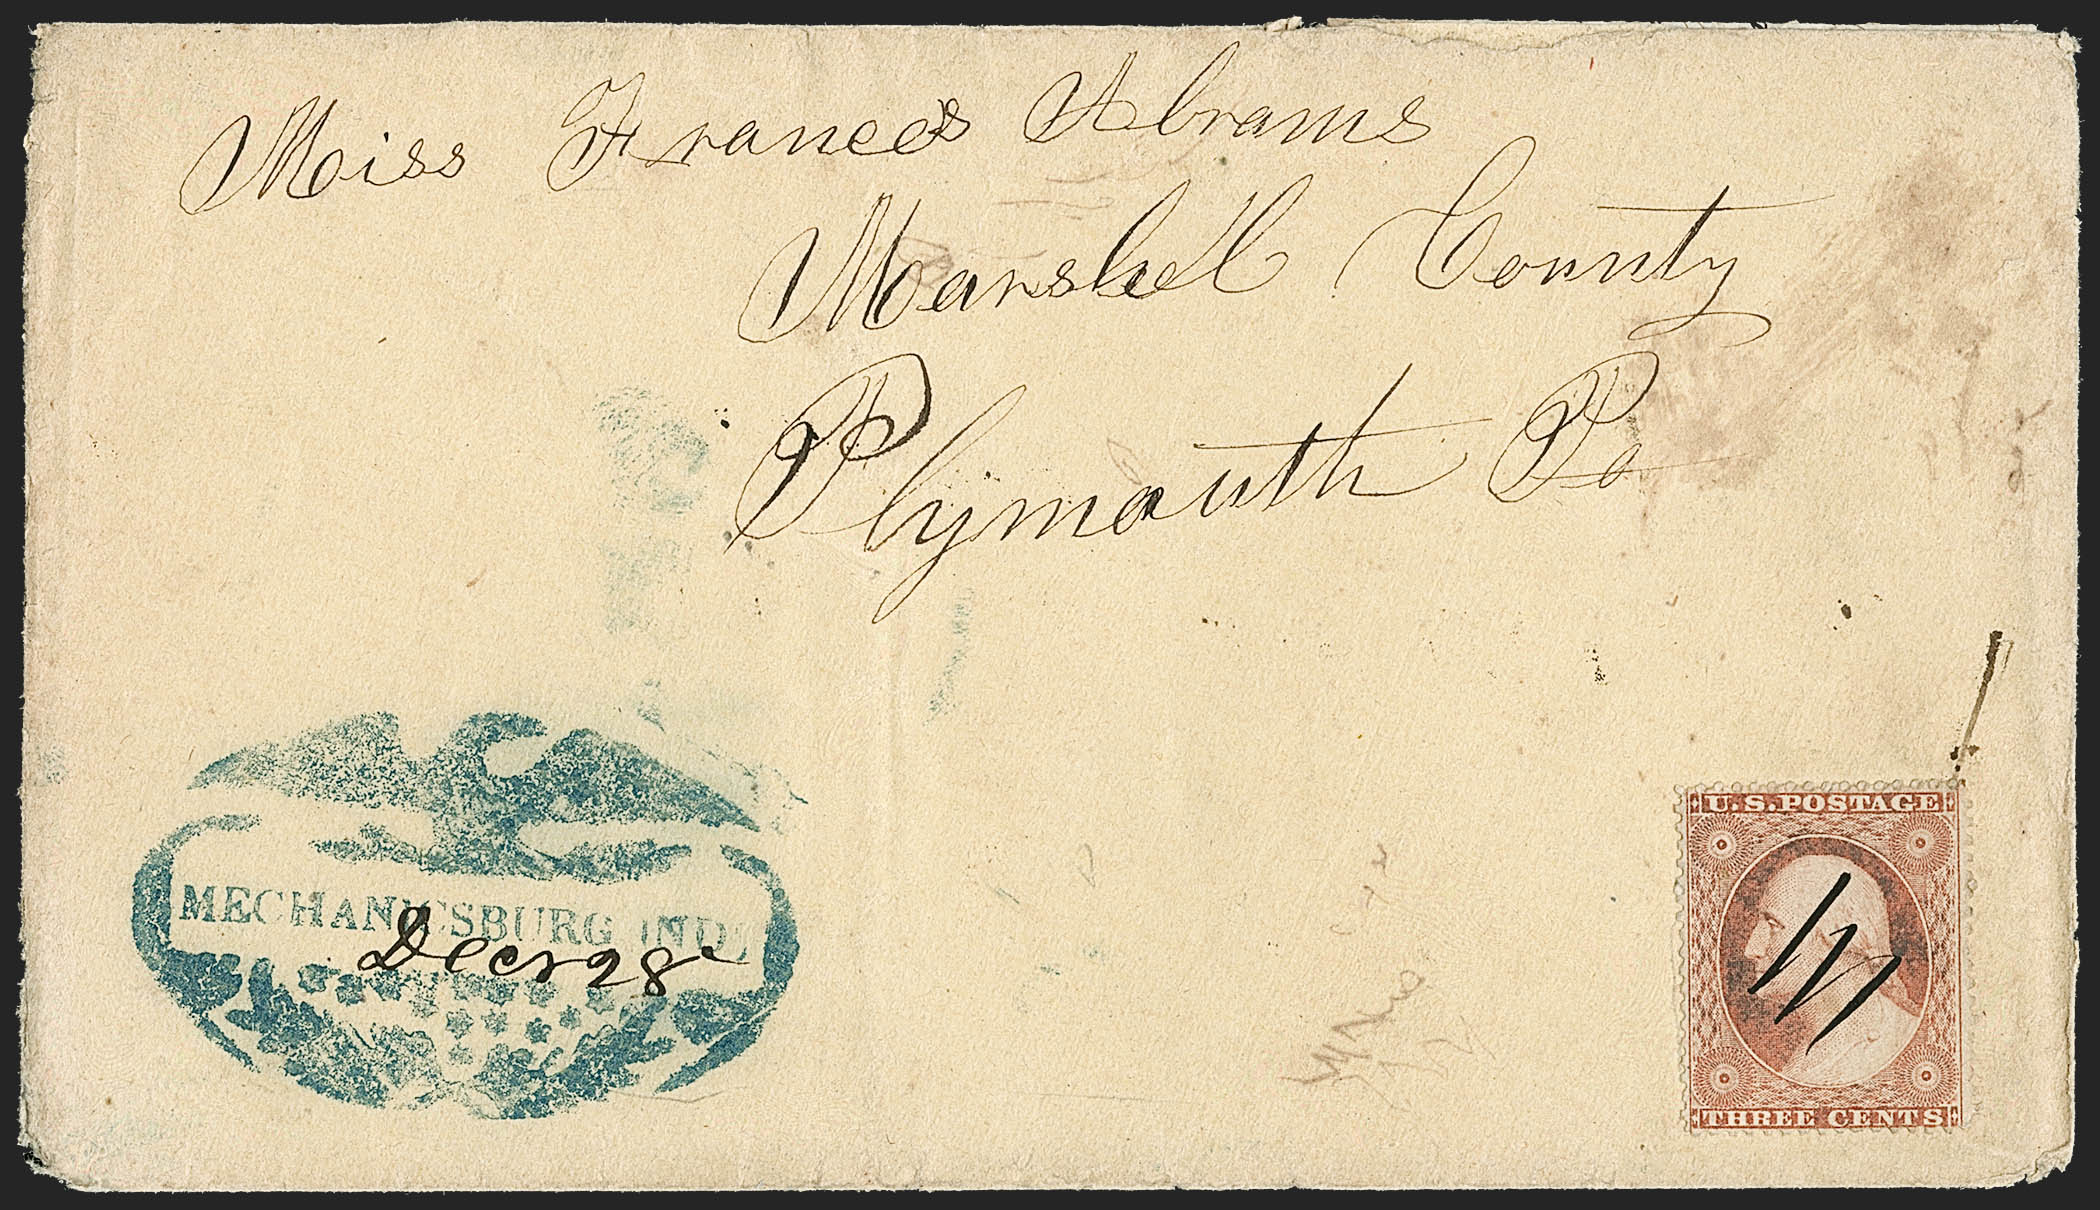 Miss Frances Abrams
Marshell County
Plymouth Ia
MECHANICSBURG IND.
Decr 28
U.S. POSTAGE
THREE CENTS